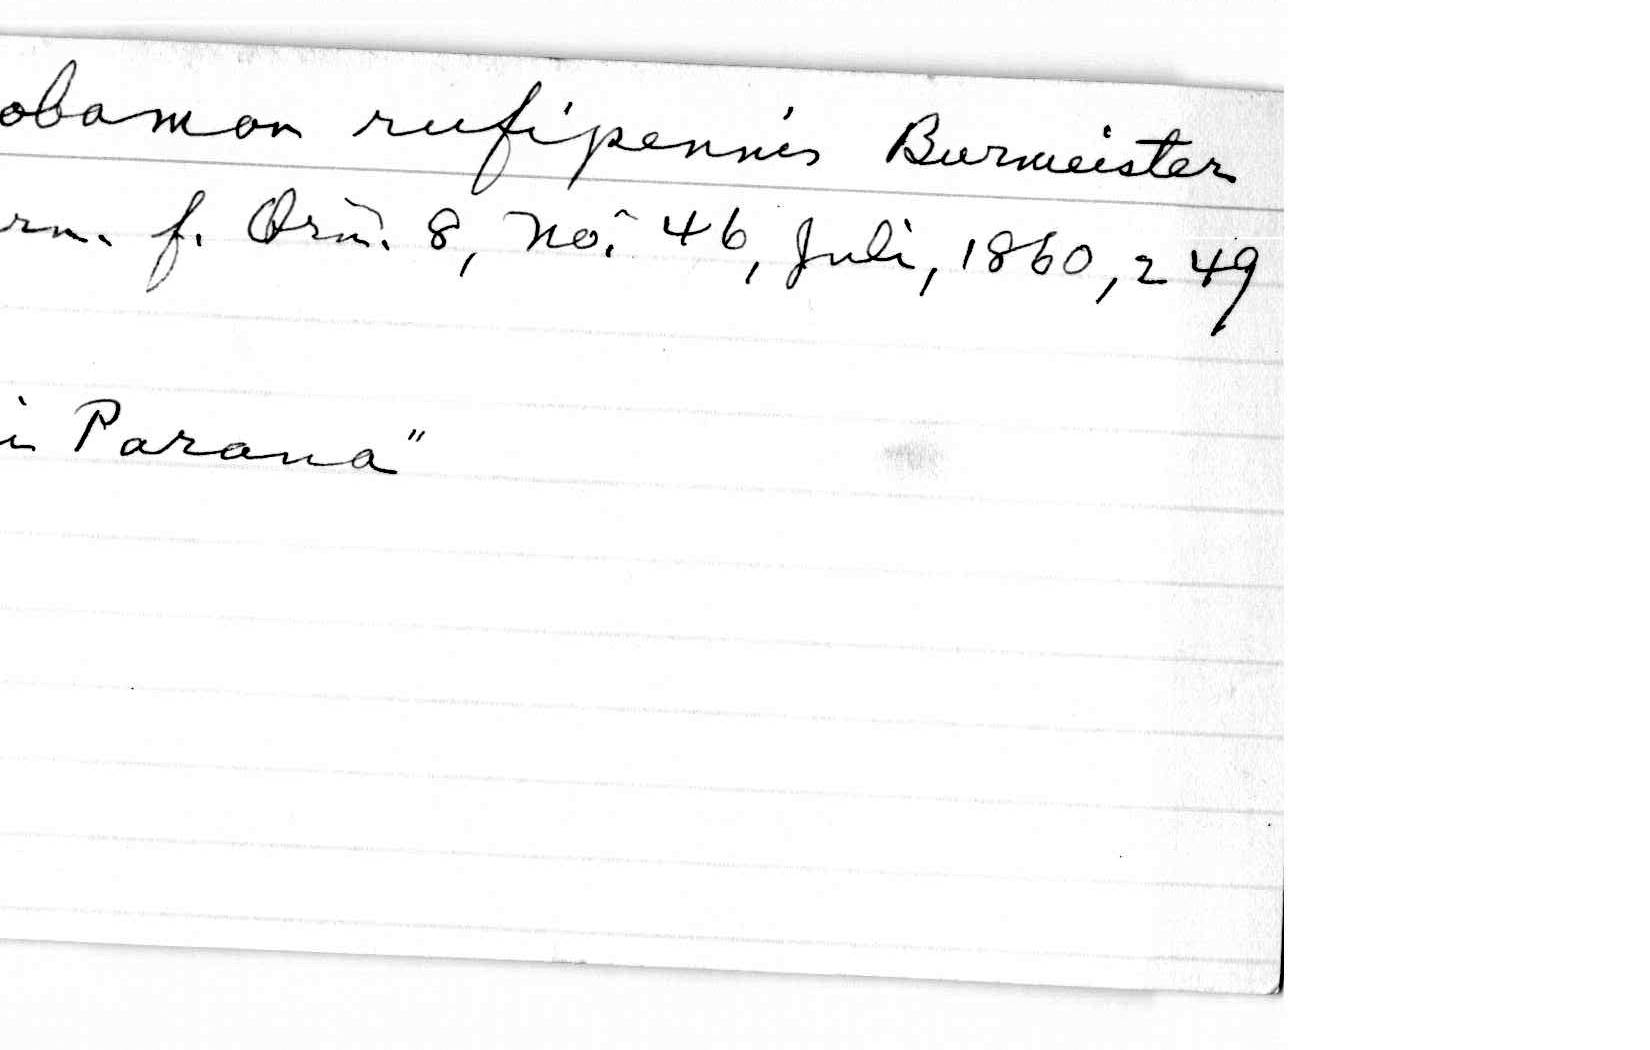 obamon rufipennis Burmeister
rn. f. Orn. 8, No. 46, Juli, 1860, 249
in Parana"